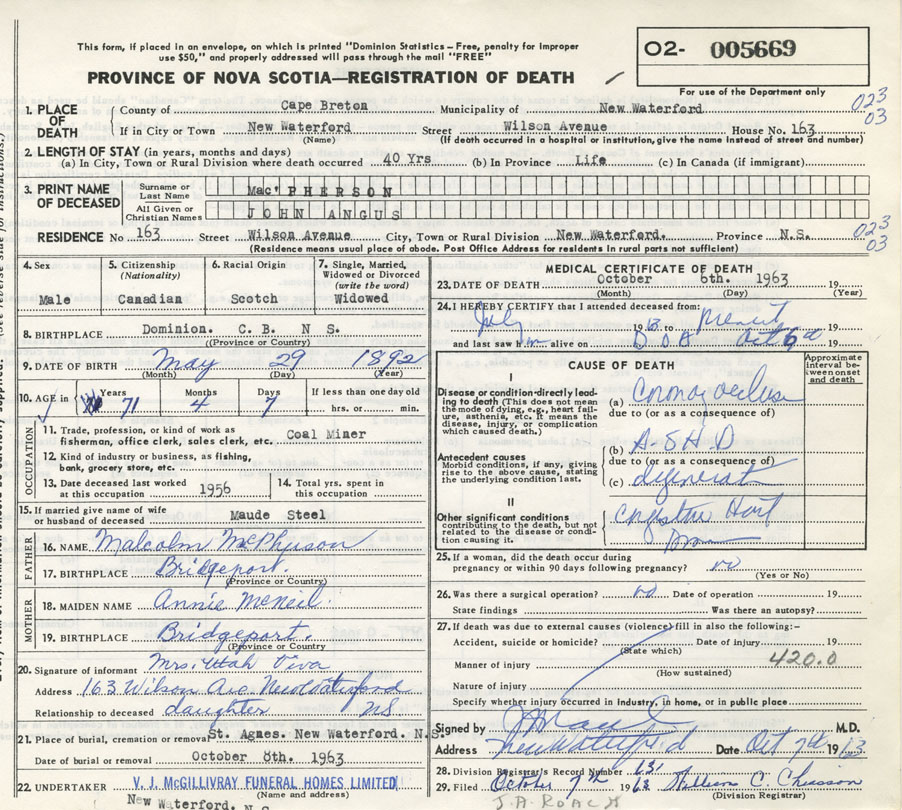 This form, if placed in an envelope, on which is printed "Dominion Statistics – Free, penalty for improper
use $50," and properly addressed will pass through the mail "FREE"
O2- 005669
PROVINCE OF NOVA SCOTIA—REGISTRATION OF DEATH
For use of the Department only
1. PLACE OF DEATH
County of Cape Breton Municipality of New Waterford 023
If in City or Town New Waterford Street Wilson Avenue House No. 163 03
(Name) (If death occurred in a hospital or institution, give the name instead of street and number)
2. LENGTH OF STAY (in years, months and days)
(a) In City, Town or Rural Division where death occurred 40 Yrs (b) In Province Life (c) In Canada (if immigrant)
3. PRINT NAME OF DECEASED
Surname or Last Name Mac'PHERSON
All Given or Christian Names JOHN ANGUS
RESIDENCE No 163 Street Wilson Avenue City, Town or Rural Division New Waterford. Province N.S. 023
(Residence means usual place of abode. Post Office Address for residents in rural parts not sufficient) 03
4. Sex Male
5. Citizenship (Nationality) Canadian
6. Racial Origin Scotch
7. Single, Married, Widowed or Divorced (write the word) Widowed
8. BIRTHPLACE Dominion. C. B. N S.
(Province or Country)
9. DATE OF BIRTH May 29 1892
(Month) (Day) (Year)
10. AGE in Years Months Days If less than one day old
71 4 7 hrs. or min.
OCCUPATION
11. Trade, profession, or kind of work as
fisherman, office clerk, sales clerk, etc. Coal Miner
12. Kind of industry or business, as fishing,
bank, grocery store, etc.
13. Date deceased last worked
at this occupation 1956
14. Total yrs. spent in
this occupation
15. If married give name of wife
or husband of deceased Maude Steel
FATHER
16. NAME Malcolm McPherson
17. BIRTHPLACE Bridgeport.
(Province or Country)
MOTHER
18. MAIDEN NAME Annie McNeil.
19. BIRTHPLACE Bridgeport.
(Province or Country)
20. Signature of informant Mrs. Utah Viva
Address 163 Wilson Ave New Waterford
Relationship to deceased daughter NS
21. Place of burial, cremation or removal St. Agnes. New Waterford. N.S.
Date of burial or removal October 8th. 1963
22. UNDERTAKER V. J. McGILLIVRAY FUNERAL HOMES LIMITED
(Name and address)
New Waterford. N.S.
MEDICAL CERTIFICATE OF DEATH
23. DATE OF DEATH October 6th. 1963 19
(Month) (Day) (Year)
24. I HEREBY CERTIFY that I attended deceased from:
July 1963 to 19
and last saw him alive on D O A Oct 6 19
CAUSE OF DEATH
Approximate interval between onset and death
I
Disease or condition directly leading to death (This does not mean the mode of dying, e.g., heart failure, asthenia, etc. It means the disease, injury, or complication which caused death.)
(a)
due to (or as a consequence of)
Antecedent causes
Morbid conditions, if any, giving rise to the above cause, stating the underlying condition last.
(b) A-S H D
due to (or as a consequence of)
(c)
II
Other significant conditions
contributing to the death, but not related to the disease or condition causing it.
25. If a woman, did the death occur during
pregnancy or within 90 days following pregnancy? no
(Yes or No)
26. Was there a surgical operation? no Date of operation 19
State findings Was there an autopsy?
27. If death was due to external causes (violence) fill in also the following:-
Accident, suicide or homicide? Date of injury 19
(State which)
Manner of injury 420.0
(How sustained)
Nature of injury
Specify whether injury occurred in industry, in home, or in public place
Signed by M.D.
Address New Waterford Date Oct 7th 1963
28. Division Registrar's Record Number 131
29. Filed October 7th 1963
(Division Registrar)
J.A. ROACH